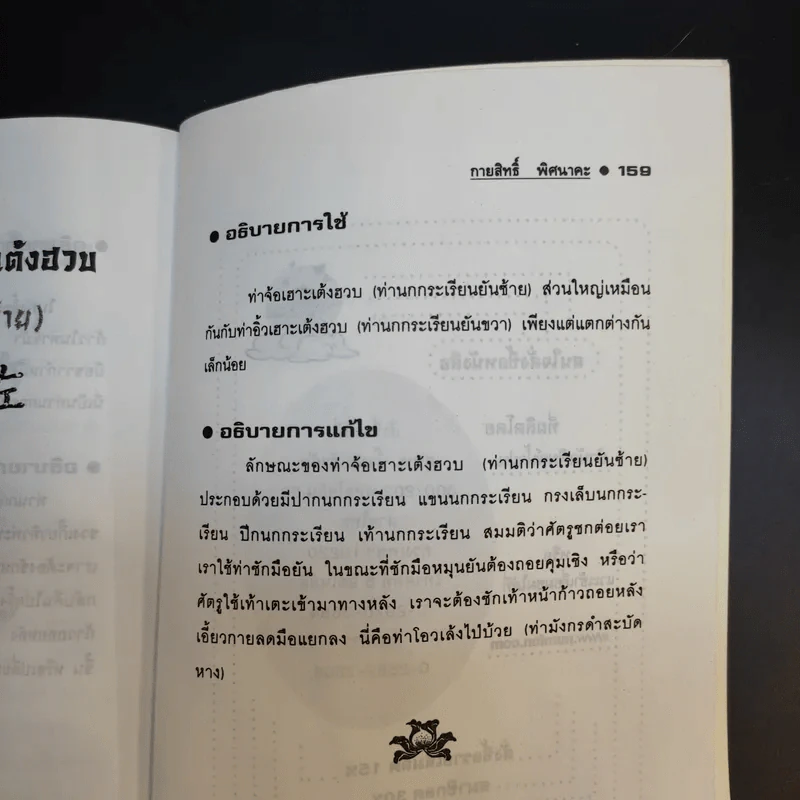 กายสิทธิ์ พิศนาคะ ● 159
● อธิบายการใช้
ท่าจ้อเฮาะเต้งฮวบ (ท่านกกระเรียนยันซ้าย) ส่วนใหญ่เหมือน
กันกับท่าอิ้วเฮาะเต้งฮวบ (ท่านกกระเรียนยันขวา) เพียงแต่แตกต่างกัน
เล็กน้อย
● อธิบายการแก้ไข
ลักษณะของท่าจ้อเฮาะเต้งฮวบ (ท่านกกระเรียนยันซ้าย)
ประกอบด้วยมีปากนกกระเรียน แขนนกกระเรียน กรงเล็บนกกระ-
เรียน ปีกนกกระเรียน เท้านกกระเรียน สมมติว่าศัตรูชกต่อยเรา
เราใช้ท่าชักมือยัน ในขณะที่ชักมือหมุนยันต้องถอยคุมเชิง หรือว่า
ศัตรูใช้เท้าเตะเข้ามาทางหลัง เราจะต้องชักเท้าหน้าก้าวถอยหลัง
เอี้ยวกายลดมือแยกลง นี่คือท่าโอวเล้งไป่บ้วย (ท่ามังกรดำสะบัด
หาง)
เต้งฮวบ
้าย)